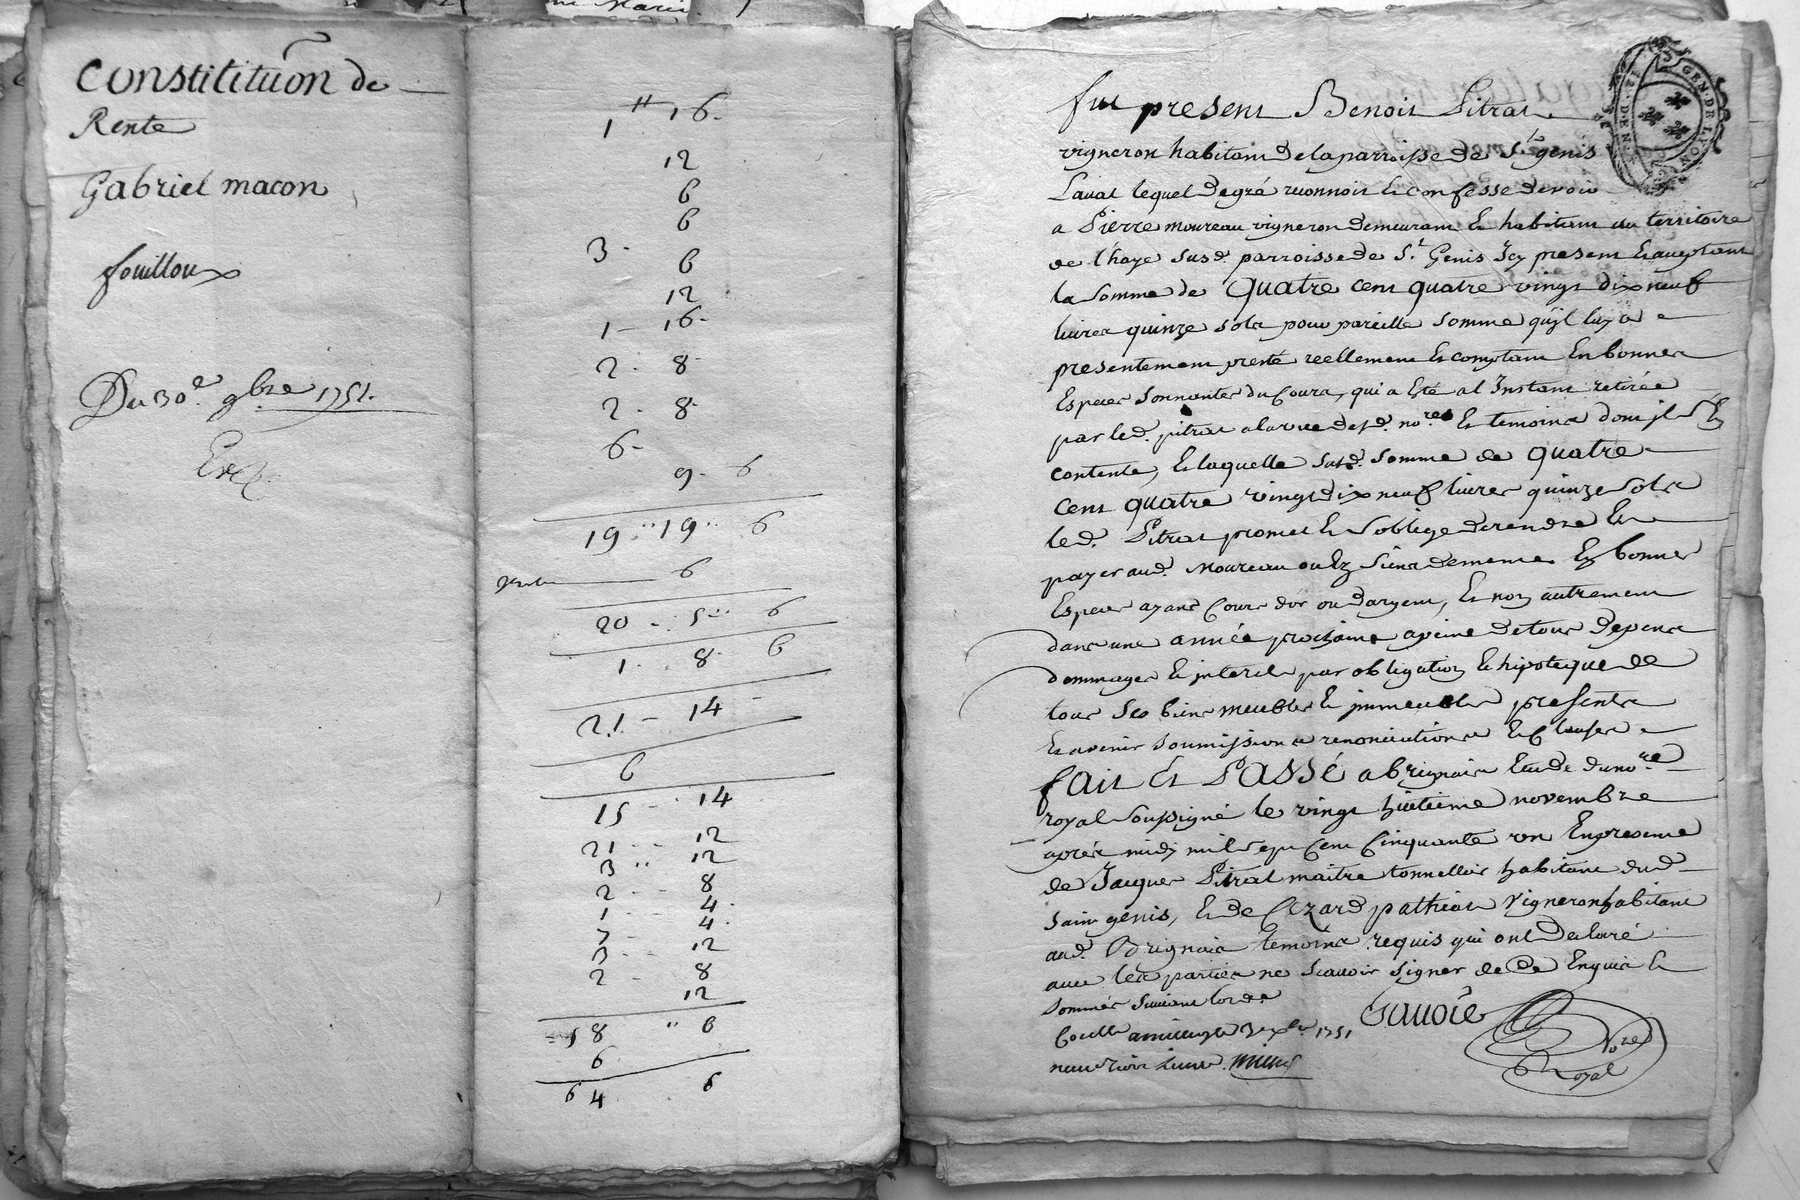 Constitution de
Rente
Gabriel macon
fouilloux
Du 30.e 9bre 1751.
Exp
1 " 16 -
12
6
6
3 -
6
12
1 - 16 -
2 - 8 -
2 - 8 -
6 -
9 - 6
19 " 19 " 6
6
20 - 5 " 6
1 - 8 - 6
21 - 14 -
6
15 - 14
21 - 12
3 " 12
2 - 8
1 - 4 -
7 - 4 -
3 - 12
2 - 8
12
58 " 6
6
64 6
GEN. DE LYON
fut present Benoit Pitrat
vigneron habitant de la parroisse de St genis
Laval lequel de gré reconnoit et confesse devoir
a Pierre moureau vigneron demeurant et habitant au territoire
de l'haye susd. parroisse de St Genis Icy present et acceptant
la somme de quatre cent quatre vingt dix neuf
livres quinze sols pour pareille somme qu'il luy a
presentement presté reellement et comptant En bonnes
Especes sonnantes du Cours, qui a Eté a l Instant retirée
par led. pitrat a la vue desd. nores Et temoins dont jl s'Est
contenté, et laquelle susd. somme de quatre
cent quatre vingt dix neuf livres quinze sols
led. Pitrat promet et s'oblige de rendre Et
payer aud. Moureau ou Ez siens de meme En bonnes
Especes ayant Cours d'or ou d'argent, Et non autrement
dans une année prochaine a peine de tous depens
dommages et jnterets par obligation et hipoteque de
tous ses biens meubles et jmmeubles presents
Et avenir soumissions renonciations et Clauses
fait Et Passé a brignais Etude du nore
royal soussigné le vingt huitieme novembre
aprés midi mil sept Cent Cinquante un En presence
de Jacques Pitrat maitre tonnellier habitant dud.
saint genis, Et de Cezard pathiot Vigneron habitant
aud. Brignais temoins requis qui ont declaré
avec les parties ne scavoir signer de ce Enquis et
sommés suivant lord.e
Savoie
Nore
Royal
Controllé a 3e xbre 1751